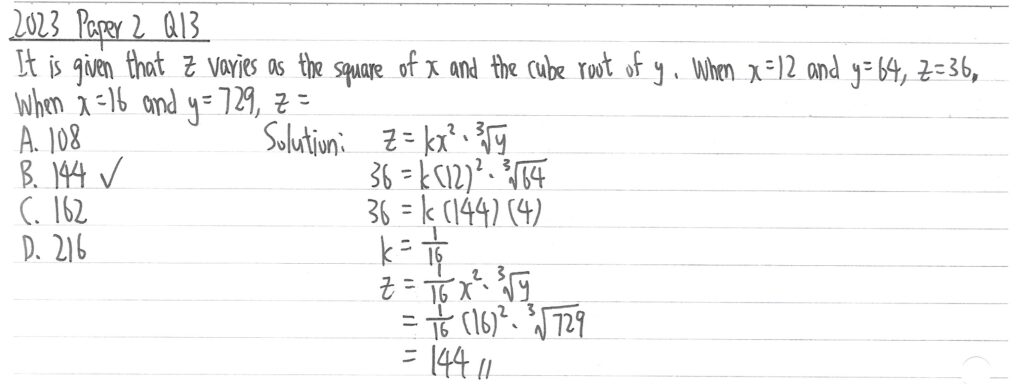 2023 Paper 2 Q13
It is given that z varies as the square of x and the cube root of y. When x=12 and y=64, z=36,
When x=16 and y=729, z=
A. 108
B. 144 ✓
C. 162
D. 216
Solution: z = kx² · ∛y
36 = k(12)² · ∛64
36 = k(144)(4)
k = 1/16
z = 1/16 x² · ∛y
= 1/16 (16)² · ∛729
= 144 //